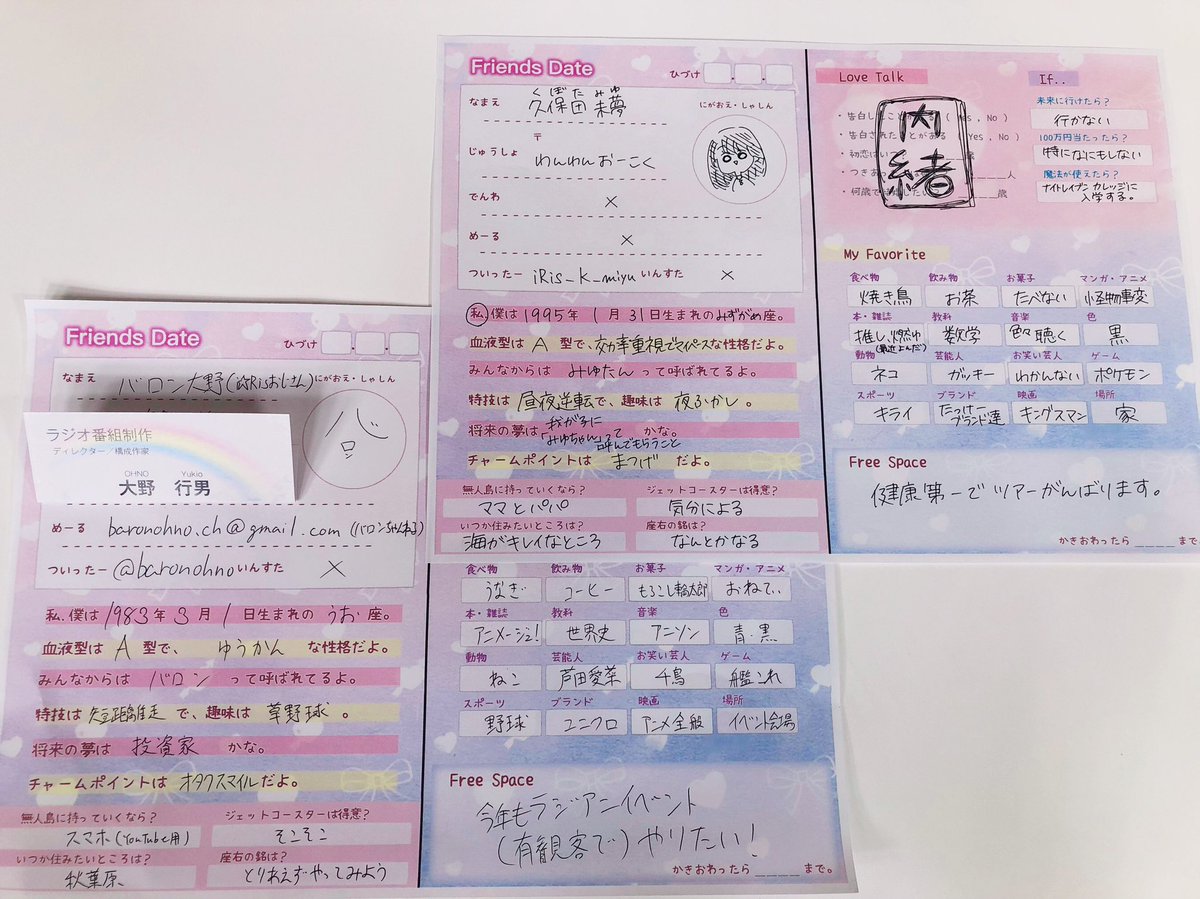 Friends Date
ひづけ
くぼた みゆ
なまえ 久保田 未夢
にがおえ・しゃしん
〒
じゅうしょ わんわんおーこく
でんわ ×
めーる ×
ついったー iRis_k_miyu いんすた ×
私、僕は1995年1月31日生まれのみずがめ座。
血液型はA型で、効率重視でマイペースな性格だよ。
みんなからはみゆたんって呼ばれてるよ。
特技は昼夜逆転で、趣味は夜ふかし。
将来の夢は我が子に「みゆちゃん」って呼んでもらうことかな。
チャームポイントはまつげだよ。
無人島に持っていくなら?
ママとパパ
ジェットコースターは得意?
気分による
いつか住みたいところは?
海がキレイなところ
座右の銘は?
なんとかなる
Love Talk
内緒
・告白したことある ( Yes , No )
・告白されたことがある Yes , No )
・初恋はいつ 歳
・つきあっ 人
・何歳で結婚した 歳
If..
未来に行けたら?
行かない
100万円当たったら?
特になにもしない
魔法が使えたら?
ナイトレイブンカレッジに
入学する。
My Favorite
食べ物 飲み物 お菓子 マンガ・アニメ
焼き鳥 お茶 たべない 怪物事変
本・雑誌 教科 音楽 色
推し、燃ゆ 数学 色々聴く 黒
(最近よんだ)
動物 芸能人 お笑い芸人 ゲーム
ネコ ガッキー わかんない ポケモン
スポーツ ブランド 映画 場所
キライ たっけーブランド達 キングスマン 家
Free Space
健康第一でツアーがんばります。
かきおわったら____まで。
Friends Date
ひづけ
なまえ バロン大野(i☆Risおじさん)
にがおえ・しゃしん
バロン
ラジオ番組制作
ディレクター/構成作家
OHNO Yukio
大野 行男
めーる baronohno.ch@gmail.com (バロンちゃんねる)
ついったー @baronohno いんすた ×
私、僕は1983年3月1日生まれのうお座。
血液型はA型で、ゆうかんな性格だよ。
みんなからはバロンって呼ばれてるよ。
特技は短距離走で、趣味は草野球。
将来の夢は投資家かな。
チャームポイントはオタクスマイルだよ。
無人島に持っていくなら?
スマホ(YouTube用)
ジェットコースターは得意?
そこそこ
いつか住みたいところは?
秋葉原
座右の銘は?
とりあえずやってみよう
食べ物 飲み物 お菓子 マンガ・アニメ
うなぎ コーヒー もろこし輪太郎 おねてぃ
本・雑誌 教科 音楽 色
アニメージュ! 世界史 アニソン 青・黒
動物 芸能人 お笑い芸人 ゲーム
ねこ 芦田愛菜 千鳥 艦これ
スポーツ ブランド 映画 場所
野球 ユニクロ アニメ全般 イベント会場
Free Space
今年もラジアニイベント
(有観客で)やりたい!
かきおわったら____まで。